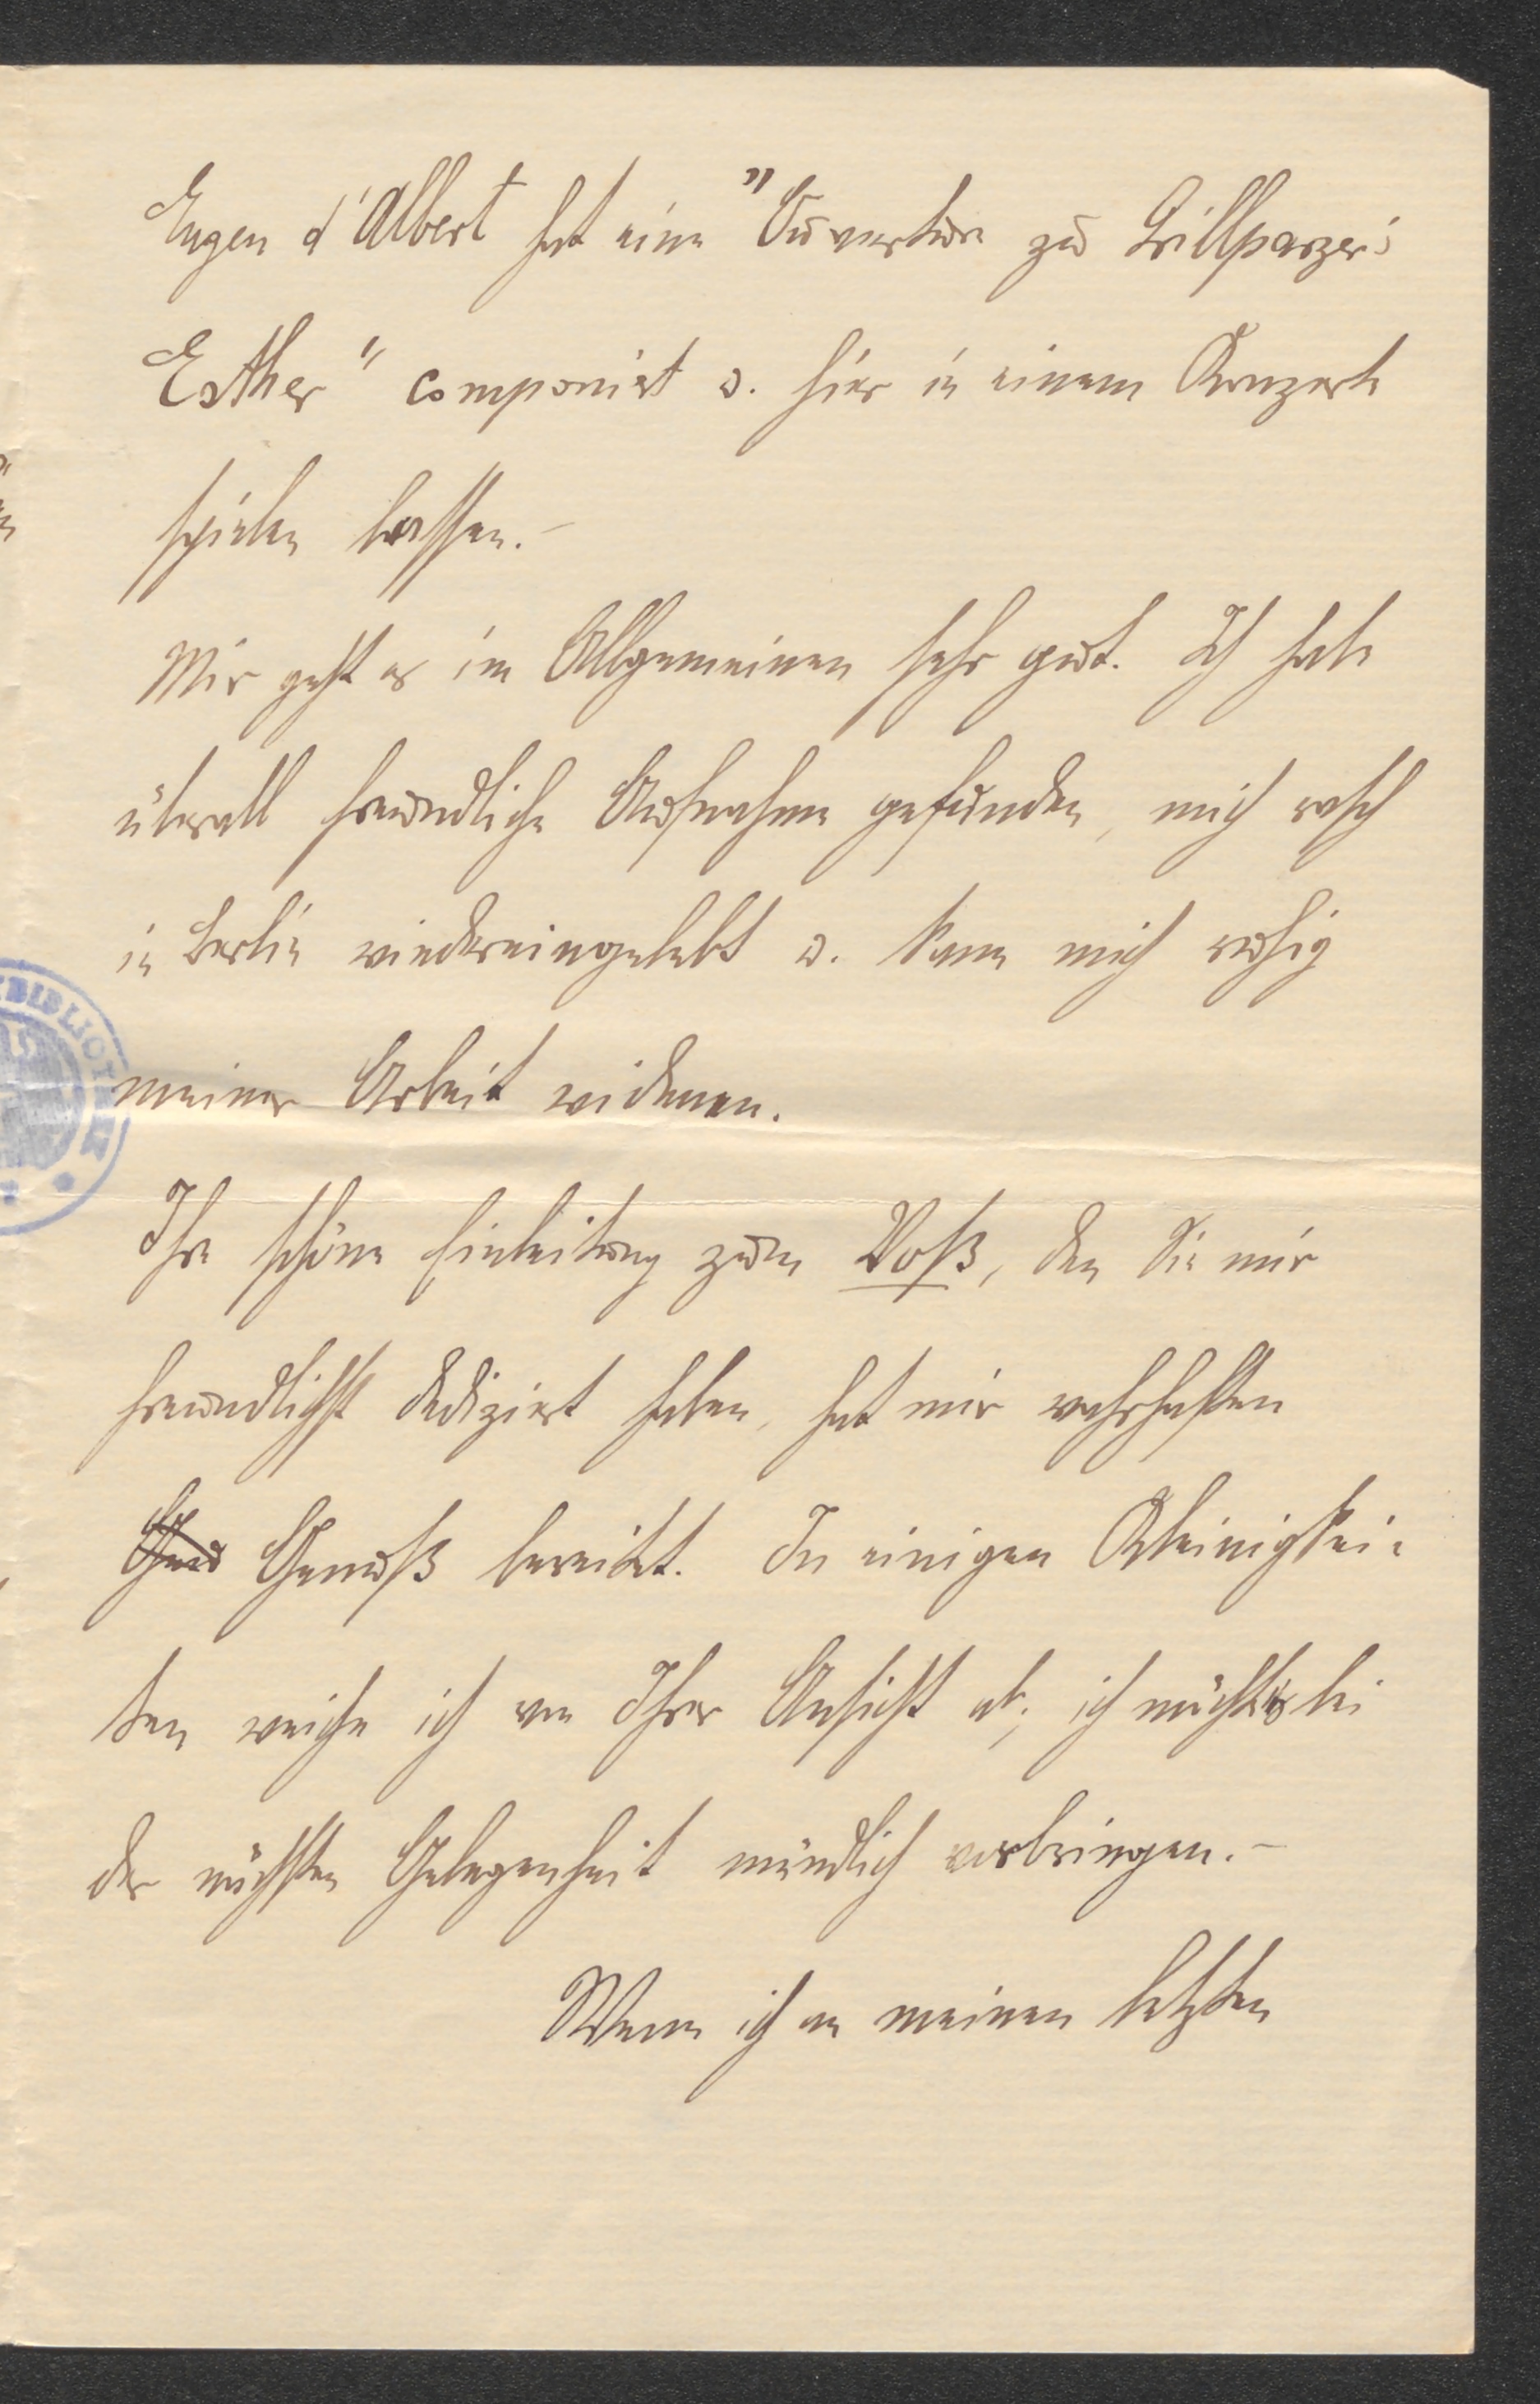 Eugen d'Albert hat eine "Ouverture zu Grillparzers
Esther" componirt u. hier in einem Konzerte
spielen lassen.-
Mir geht es im Allgemeinen sehr gut. Ich habe
überall freundliche Aufnahme gefunden, mich rasch
in Berlin wiedereingelebt u. kann mich ruhig
meiner Arbeit widmen.
Ihre schöne Einleitung zum Voß, den Sie mir
freundlichst dediziert haben, hat mir wahrhaften
Genuß bereitet. In einigen Kleinigkei-
ten weiche ich von Ihrer Ansicht ab; ich möchte bei
der nächsten Gelegenheit mündlich vorbringen.-
Wenn ich an meinen letzten
BIBLIOTHEK